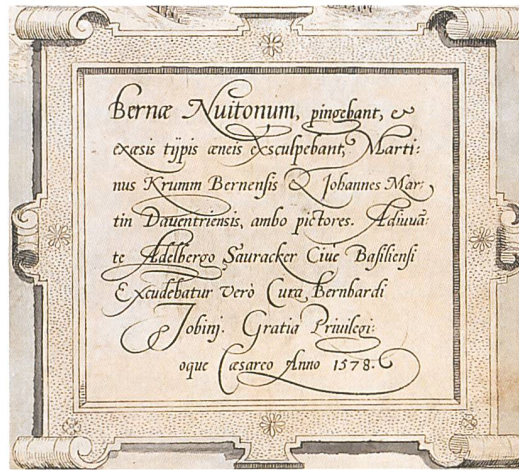 Bernæ Nuitonum, pingebant, &
exæsis tÿpis æneis exsculpebant, Marti:
nus Krumm Bernensis & Johannes Mar:
tin Dauentriensis, ambo pictores. Adiuuā:
te Adelbergo Sauracker Ciue Basiliensi
Excudebatur verò Cura, Bernhardi
Jobinj. Gratia Priuilegi:
oque Cæsareo Anno 1578.